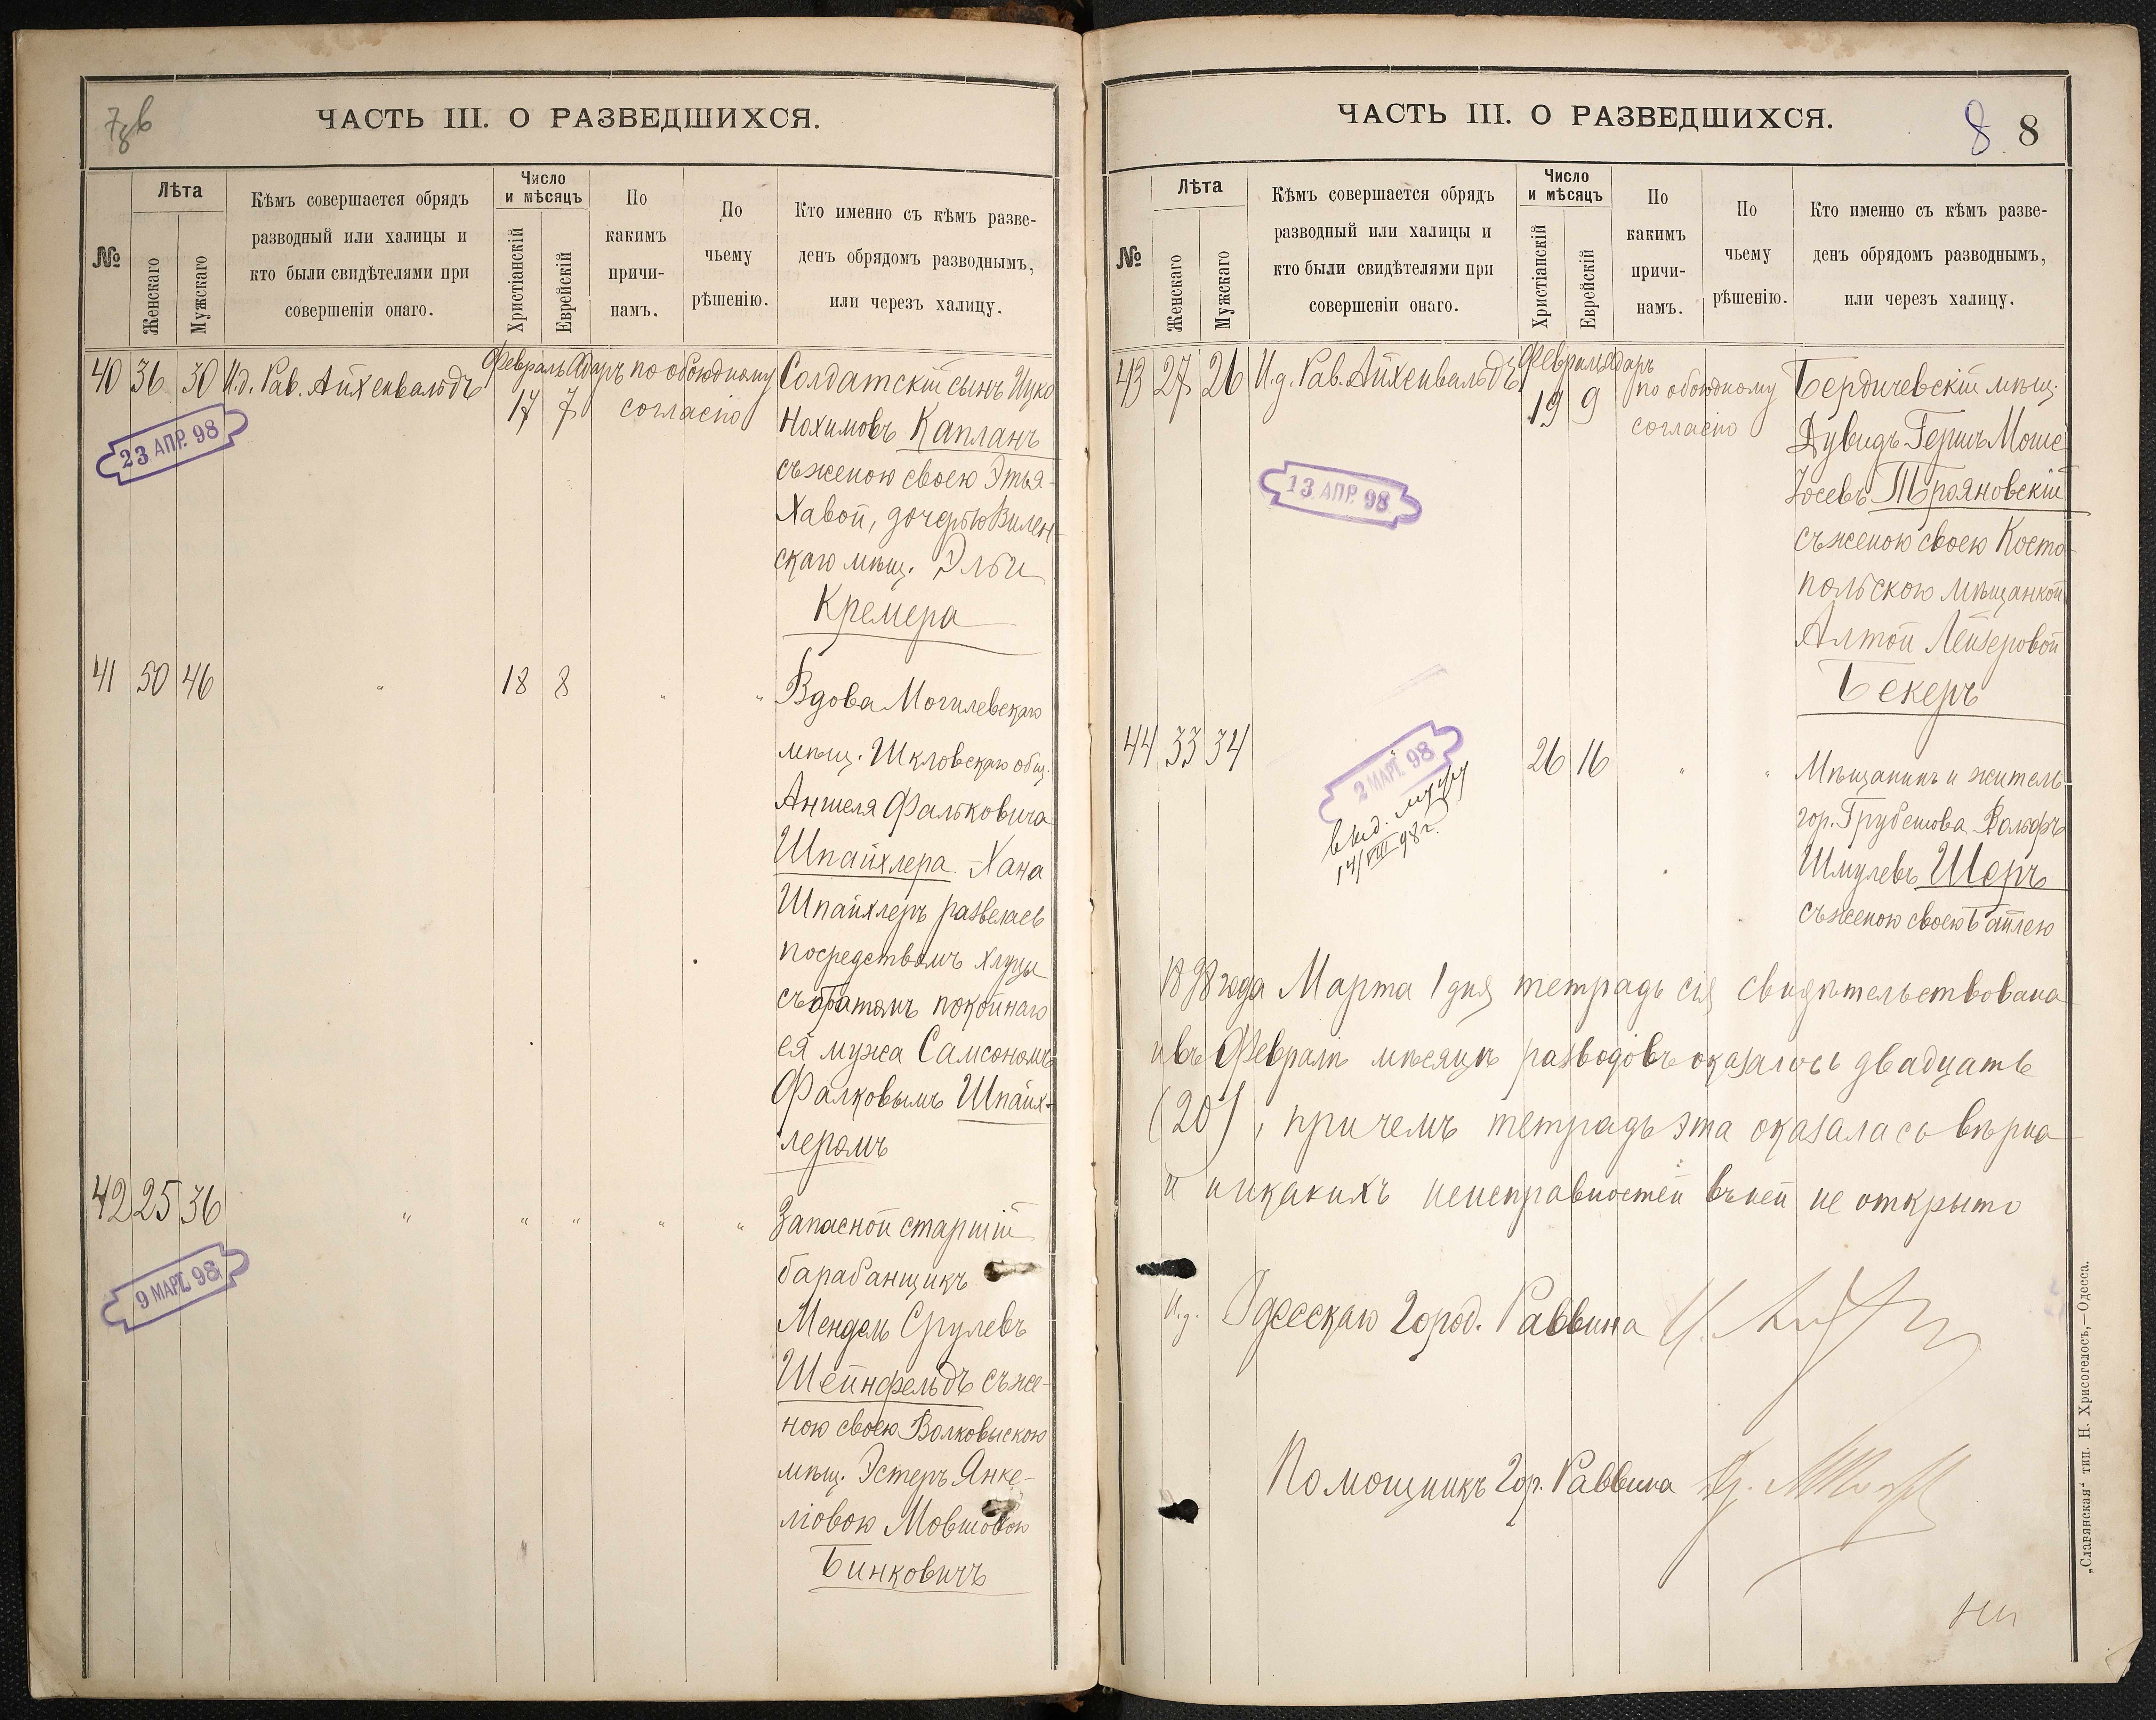 7 об
ЧАСТЬ III. О РАЗВЕДШИХСЯ.
№
Лѣта
Женскаго
Мужскаго
Кѣмъ совершается обрядъ
разводный или халицы и
кто были свидѣтелями при
совершеніи онаго.
Число
и мѣсяцъ
Христіанскій
Еврейскій
По
какимъ
причи-
намъ.
По
чьему
рѣшенію.
Кто именно съ кѣмъ разве-
денъ обрядомъ разводнымъ,
или черезъ халицу.
40 36 30 И.д. Рав. Айхенвальдъ Февраль Адаръ по обоюдному Солдатскій сынъ Ицко
17 7 согласію Нохимовъ Капланъ
23 АПР. 98
съ женою своею Этья-
Хавой, дочерью Вилен-
скаго мѣщ. Эльи
Кремера
41 50 46 " 18 8 " " Вдова Могилевскаго
мѣщ. Шкловскаго общ.
Аншеля Фальковича
Шпайхлера Хана
Шпайхлеръ развелась
посредствомъ хлуцы
съ братомъ покойнаго
ея мужа Самсономъ
Фалковымъ Шпайх-
леромъ
42 25 36 " " " " " Запасной старшій
барабанщикъ
9 МАРТ. 98
Мендель Срулевъ
Шейнфельдъ съ же-
ною своею Волковыскою
мѣщ. Эстеръ Янке-
ліовою Мовшовою
Бинковичъ
ЧАСТЬ III. О РАЗВЕДШИХСЯ.
8 8
№
Лѣта
Женскаго
Мужскаго
Кѣмъ совершается обрядъ
разводный или халицы и
кто были свидѣтелями при
совершеніи онаго.
Число
и мѣсяцъ
Христіанскій
Еврейскій
По
какимъ
причи-
намъ.
По
чьему
рѣшенію.
Кто именно съ кѣмъ разве-
денъ обрядомъ разводнымъ,
или черезъ халицу.
43 27 26 И.д. Рав. Айхенвальдъ Февраль Адаръ по обоюдному Бердичевскій мѣщ.
19 9 согласію Дувидъ Гершъ Моше
Іосевъ Трояновскій
13 АПР. 98
съ женою своею Косто-
польскою мѣщанкой
Алтой Лейзеровой
Бекеръ
44 33 34 " 26 16 " " Мѣщанинъ и житель
2 МАРТ. 98
гор. Грубешова Вольфъ
выд. мужу
14/VIII 98 г.
Шмулевъ Шоръ
съ женою своею Байлею
1898 года Марта 1 дня тетрадь сія свидѣтельствована
и въ Февралѣ мѣсяцѣ разводовъ оказалось двадцать
(20), причемъ тетрадь эта оказалась вѣрна
и никакихъ неисправностей въ ней не открыто
И.д. Одесскаго Город. Раввина
Помощникъ Гор. Раввина
„Славянская“ тип. Н. Хрисогелосъ,—Одесса.